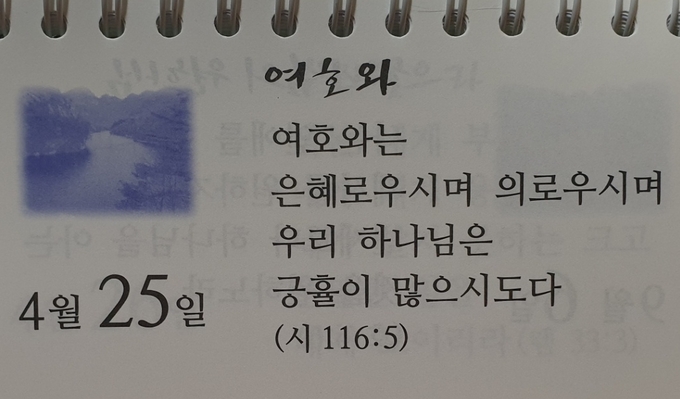 여호와
여호와는
은혜로우시며 의로우시며
우리 하나님은
긍휼이 많으시도다
(시 116:5)
4월 25일